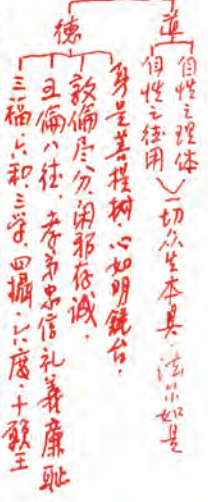 道
自性之理体
自性之德用
一切众生本具·法尔如是
德
身是菩提树·心如明镜台·
敦倫尽分·闲邪存诚·
五倫八德·孝弟忠信礼義廉耻
三福·六和·三学·四攝·六度·十願王